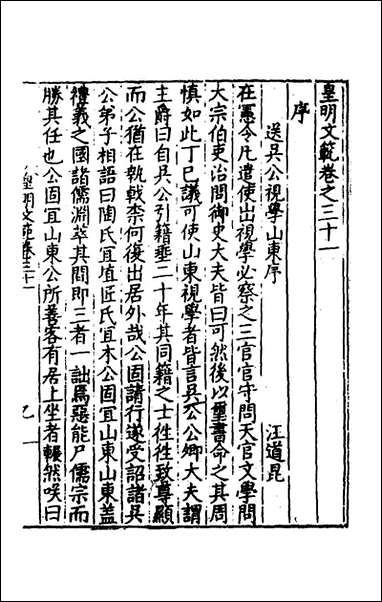 皇明文範卷之三十一
序
送吳公視學山東序 汪道昆
在憲令凡遣使出視學必察之三官官守問天官文學問
大宗伯吏治問御史大夫皆曰可然後以璽書命之其周
慎如此丁巳議可使山東視學者皆言吳公公卿大夫謂
主爵曰自吳公引籍垂二十年其同籍之士徃徃致尊顯
而公猶在執戟柰何復出居外哉公固請行遂受詔諸吳
公弟子相語曰陶氏宜埴匠氏宜木公固宜山東山東蓋
禮義之國諸儒淵萃其間即三者一詘焉惡能尸儒宗而
勝其任也公固宜山東公所善客有居上坐者囅然咲曰
皇明文範卷三十一
一